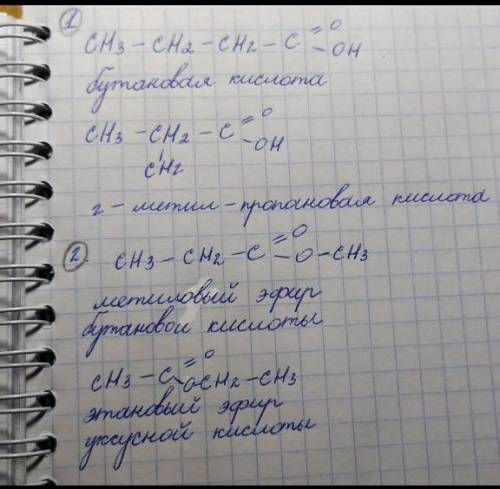 1
CH3 – CH2 – CH2 – C = O – OH
бутановая кислота
CH3 – CH2 – C = O – OH
CH2
2 – метил – пропановая кислота
2 CH3 – CH2 – C = O – O – CH3
метиловый эфир
бутановой кислоты
CH3 – C = O OCH2 – CH3
этановый эфир
уксусной кислоты